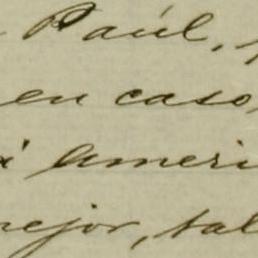 Paúl,
en caso,
Ameri
mejor, sal